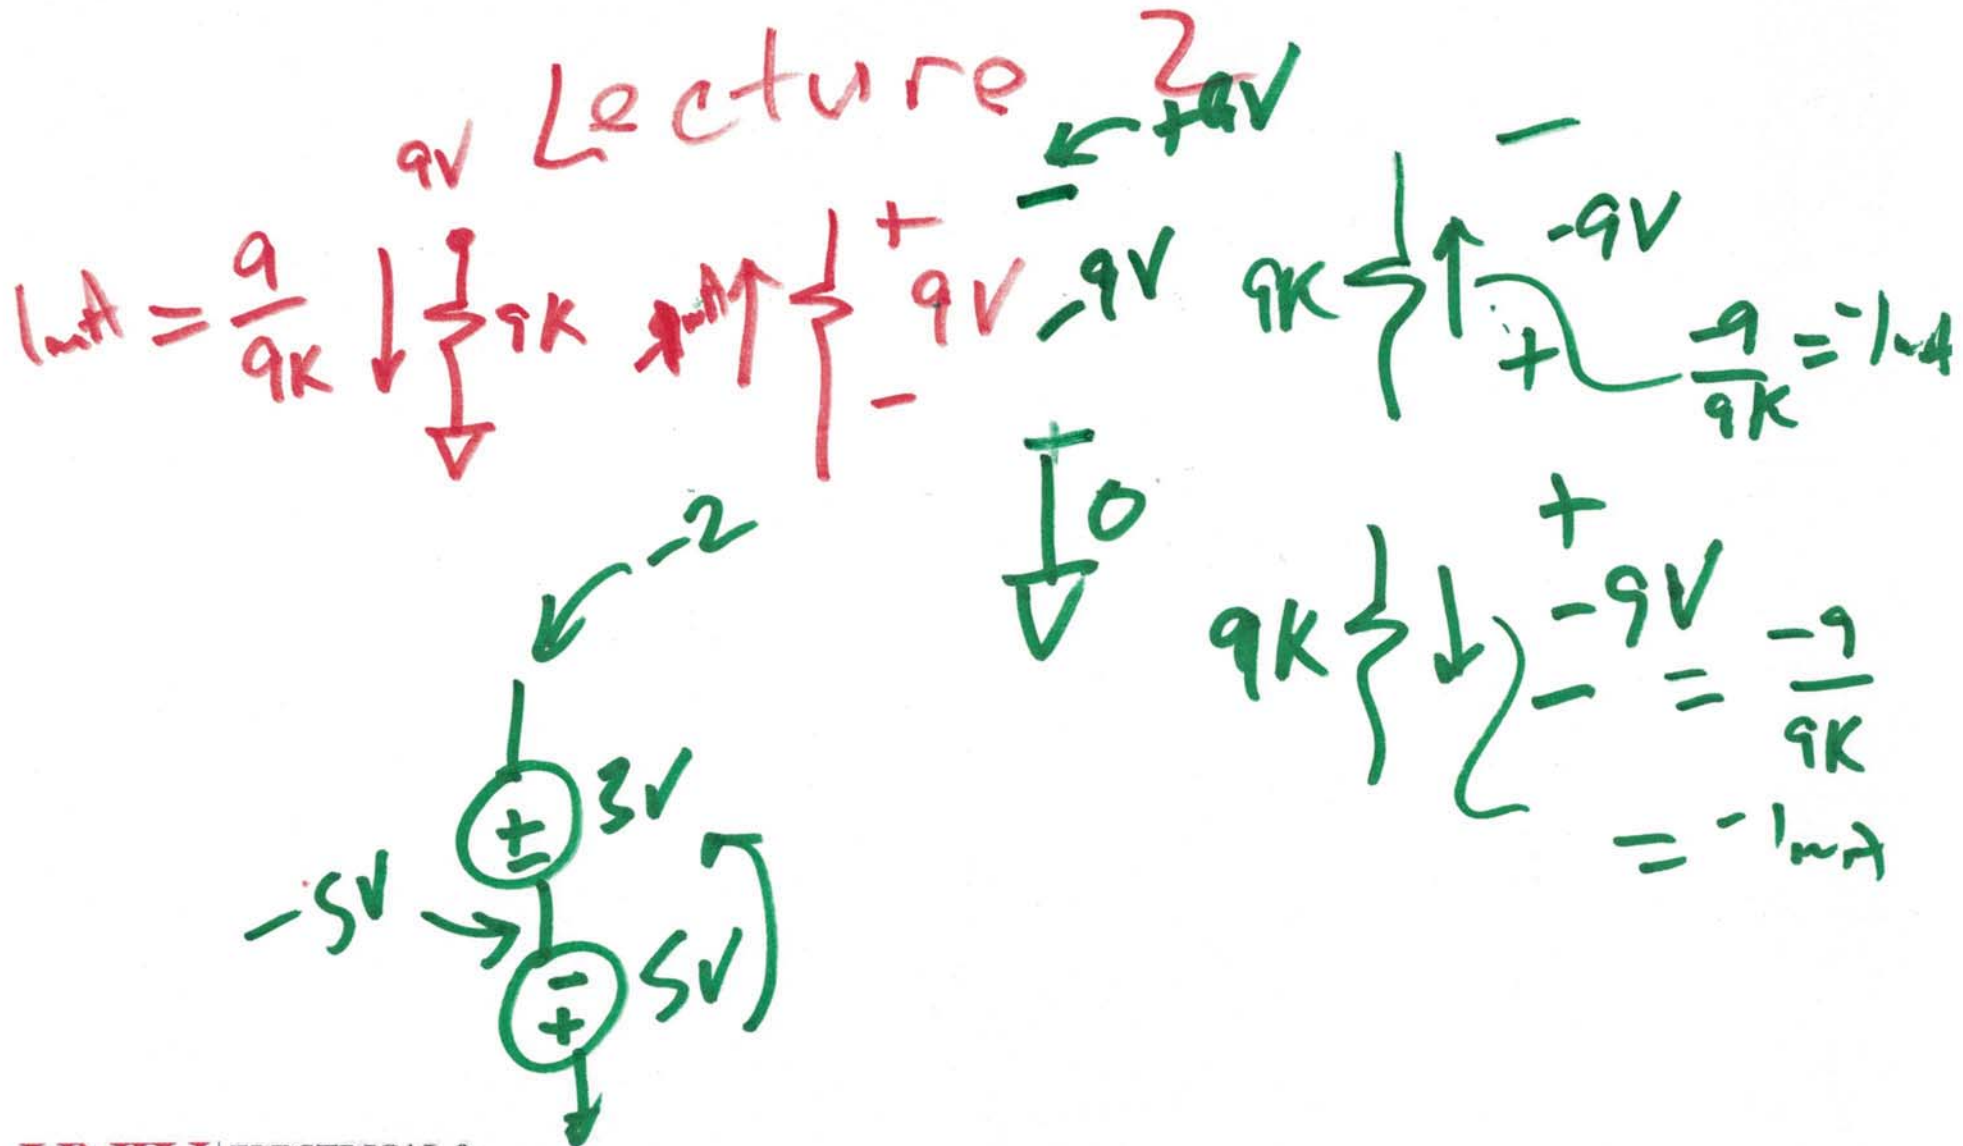 Lecture 2
9V
+9V
1mA = 9/9K
9K
+
9V
-
-
-9V
+
0
-
9K
-9V
+
-9/9K = -1mA
+
9K
-9V
-
= -9/9K
= -1mA
-2
+
-
3V
-5V
-
+
5V